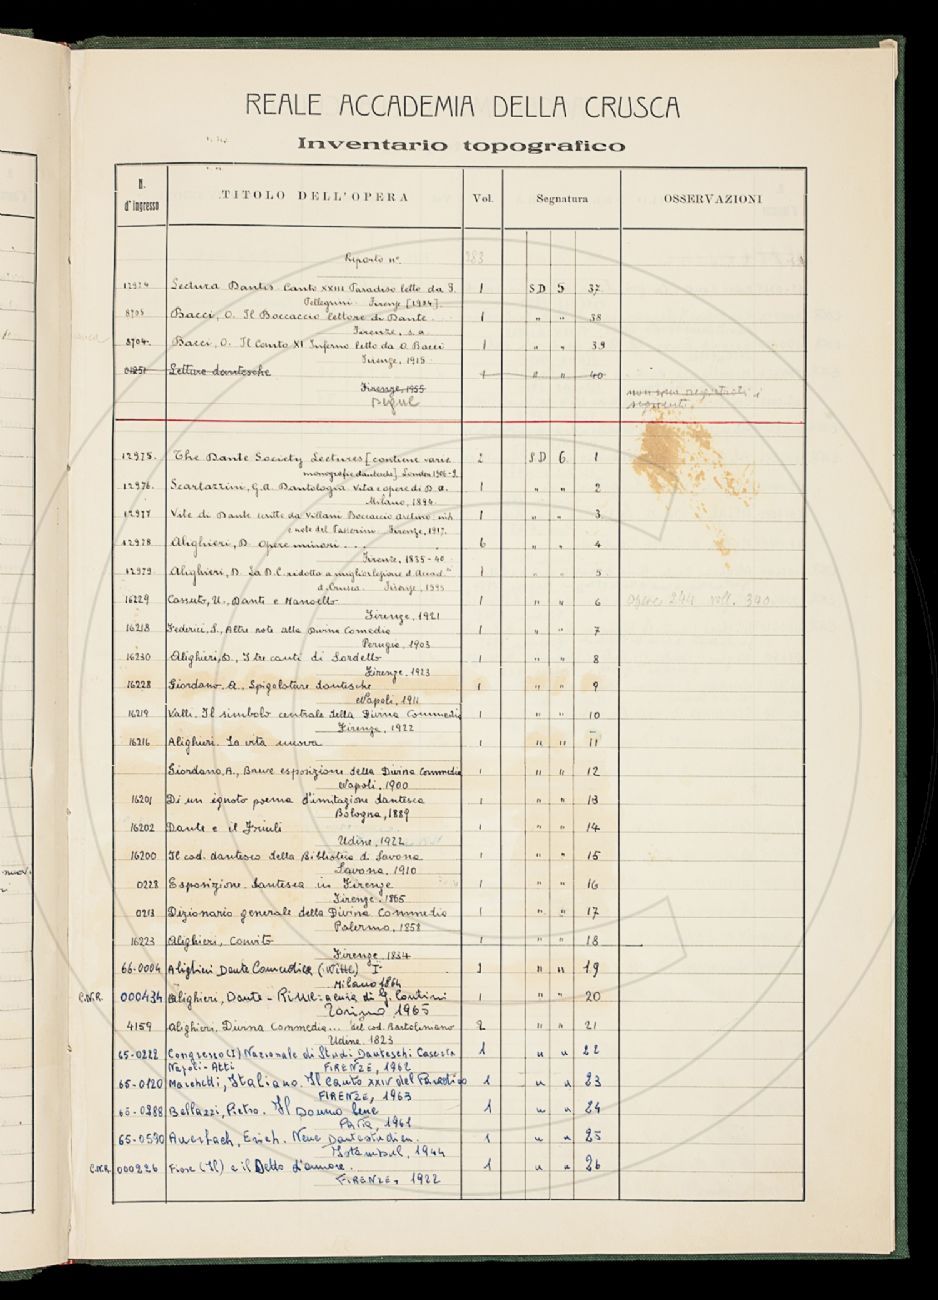 REALE ACCADEMIA DELLA CRUSCA
Inventario topografico
N. d'ingresso TITOLO DELL'OPERA Vol. Segnatura OSSERVAZIONI
Riporto n°. 283
12974 Lectura Dantis Canto XXIII Paradiso letto da F. 1 SD 5 37
Pellegrini. Firenze [1904].
8705 Bacci, O. Il Boccaccio lettore di Dante. 1 " " 38
Firenze, s. a.
8704. Bacci, O. Il Canto XI Inferno letto da O. Bacci 1 " " 39
Firenze, 1915.
Letture dantesche 1 " " 40
Firenze, 1955
non sono registrati i
segue
12975. The Dante Society Lectures [contiene varie 2 SD 6 1
monografie dantesche] London 1906-9.
12976. Scartazzini, G.A. Dantologia. Vita e opere di D. A. 1 " " 2
Milano, 1894.
12977 Vite di Dante scritte da Villani Boccaccio Aretino 1 " " 3.
e note del Passerini. Firenze, 1917.
12978 Alighieri, D. Opere minori ... 6 " " 4
Firenze, 1835-40.
12979 Alighieri, D. La D. C. ridotta a miglior lezione d. Accad. 1 " " 5
d. Crusca. Firenze, 1595
16229 Cassuto, U., Dante e Manoello 1 " " 6 Opere 244 voll. 340
Firenze, 1921
16218 Federici, S., Altre note alla Divina Comedia 1 " " 7
Perugia, 1903
16230 Alighieri, D., I tre canti di Sordello 1 " " 8
Firenze, 1923
16228 Giordano. A., Spigolature dantesche 1 " " 9
Napoli, 1911
16219 Valli. Il simbolo centrale della Divina Commedia 1 " " 10
Firenze, 1922
16216 Alighieri. La vita nuova 1 " " 11
Giordano, A., Breve esposizione della Divina Commedia 1 " " 12
Napoli, 1900
16201 Di un ignoto poema d'imitazione dantesca 1 " " 13
Bologna, 1889
16202 Dante e il Friuli 1 " " 14
Udine, 1922
16200 Il cod. dantesco della Biblioteca di Savona 1 " " 15
Savona, 1910
0228 Esposizione dantesca in Firenze 1 " " 16
Firenze, 1865
0213 Dizionario generale della Divina Commedia 1 " " 17
Palermo, 1858
16223 Alighieri, Convito 1 " " 18
Firenze, 1834
66-0004 Alighieri Dante Commedia (Witte) I° 1 " " 19
Milano 1864
C.N.R. 000434 Alighieri, Dante - Rime - a cura di G. Contini 1 " " 20
Torino 1965
4159 Alighieri. Divina Commedia... del cod. Bartoliniano 2 " " 21
Udine. 1823
65-0222 Congresso (I) Nazionale di Studi Danteschi Caserta 1 " " 22
Napoli - Atti FIRENZE, 1962
65-0120 Marchetti, Italiano. Il canto XXIV del Paradiso 1 " " 23
FIRENZE, 1963
Bellazzi, Pietro. Il Donno bene 1 " " 24
1961
65-0570 Auerbach, Erich. Neue Dantestudien. 1 " " 25
Istambul, 1944
C.N.R. 000226 Fiore (Il) e il Detto d'amore. 1 " " 26
FIRENZE, 1922